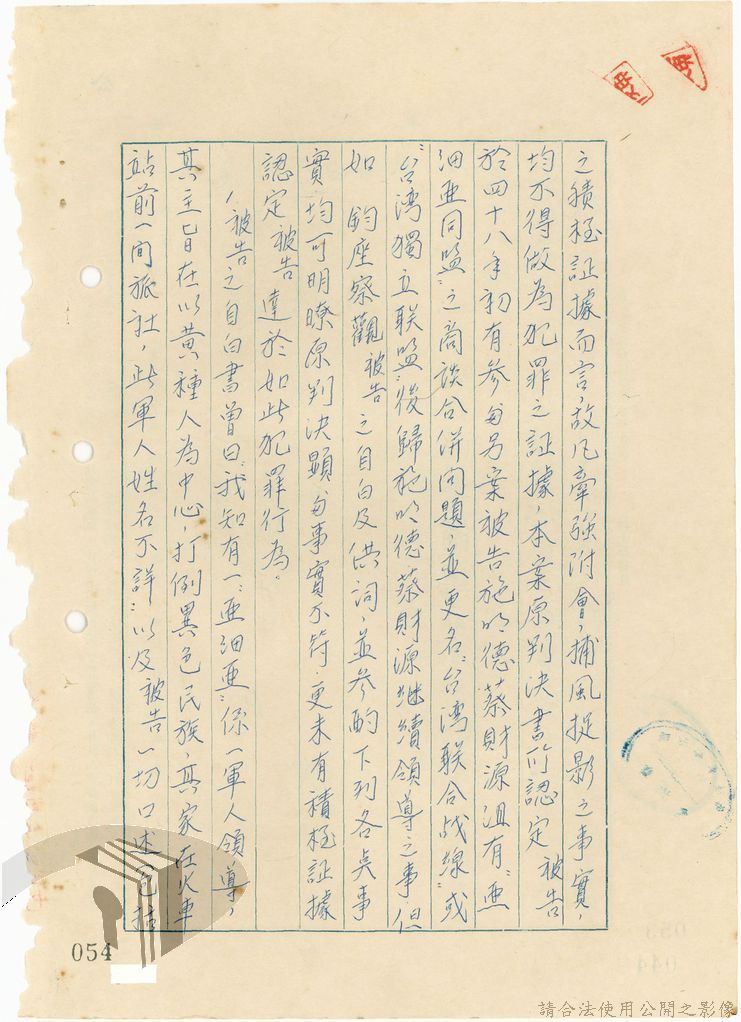 之積極証據而言，故凡牽強附會，捕風捉影之事實，
均不得做為犯罪之証據，本案原判決書所認定 被告
於四十八年初有參與另案被告施明德蔡財源沮有“亜
細亜同盟”之商談合併问題，並更名“台湾联合战線”或
“台湾獨立联盟”後歸施明德蔡財源继續領導之事但
如 鈞座察觀 被告 之自白及供詞，並參酌下列各点事
實，均可明瞭原判決顕與事實不符，更未有積極証據
認定 被告 達於如此犯罪行為。
1 被告之自白書曾曰“我知有一“亜细亜”係一軍人領導，
其主旨在以黄種人為中心，打倒異色民族，其家在火車
站前一间旅社，此軍人姓名不詳”以及 被告 一切口述 包括
054
請合法使用公開之影像